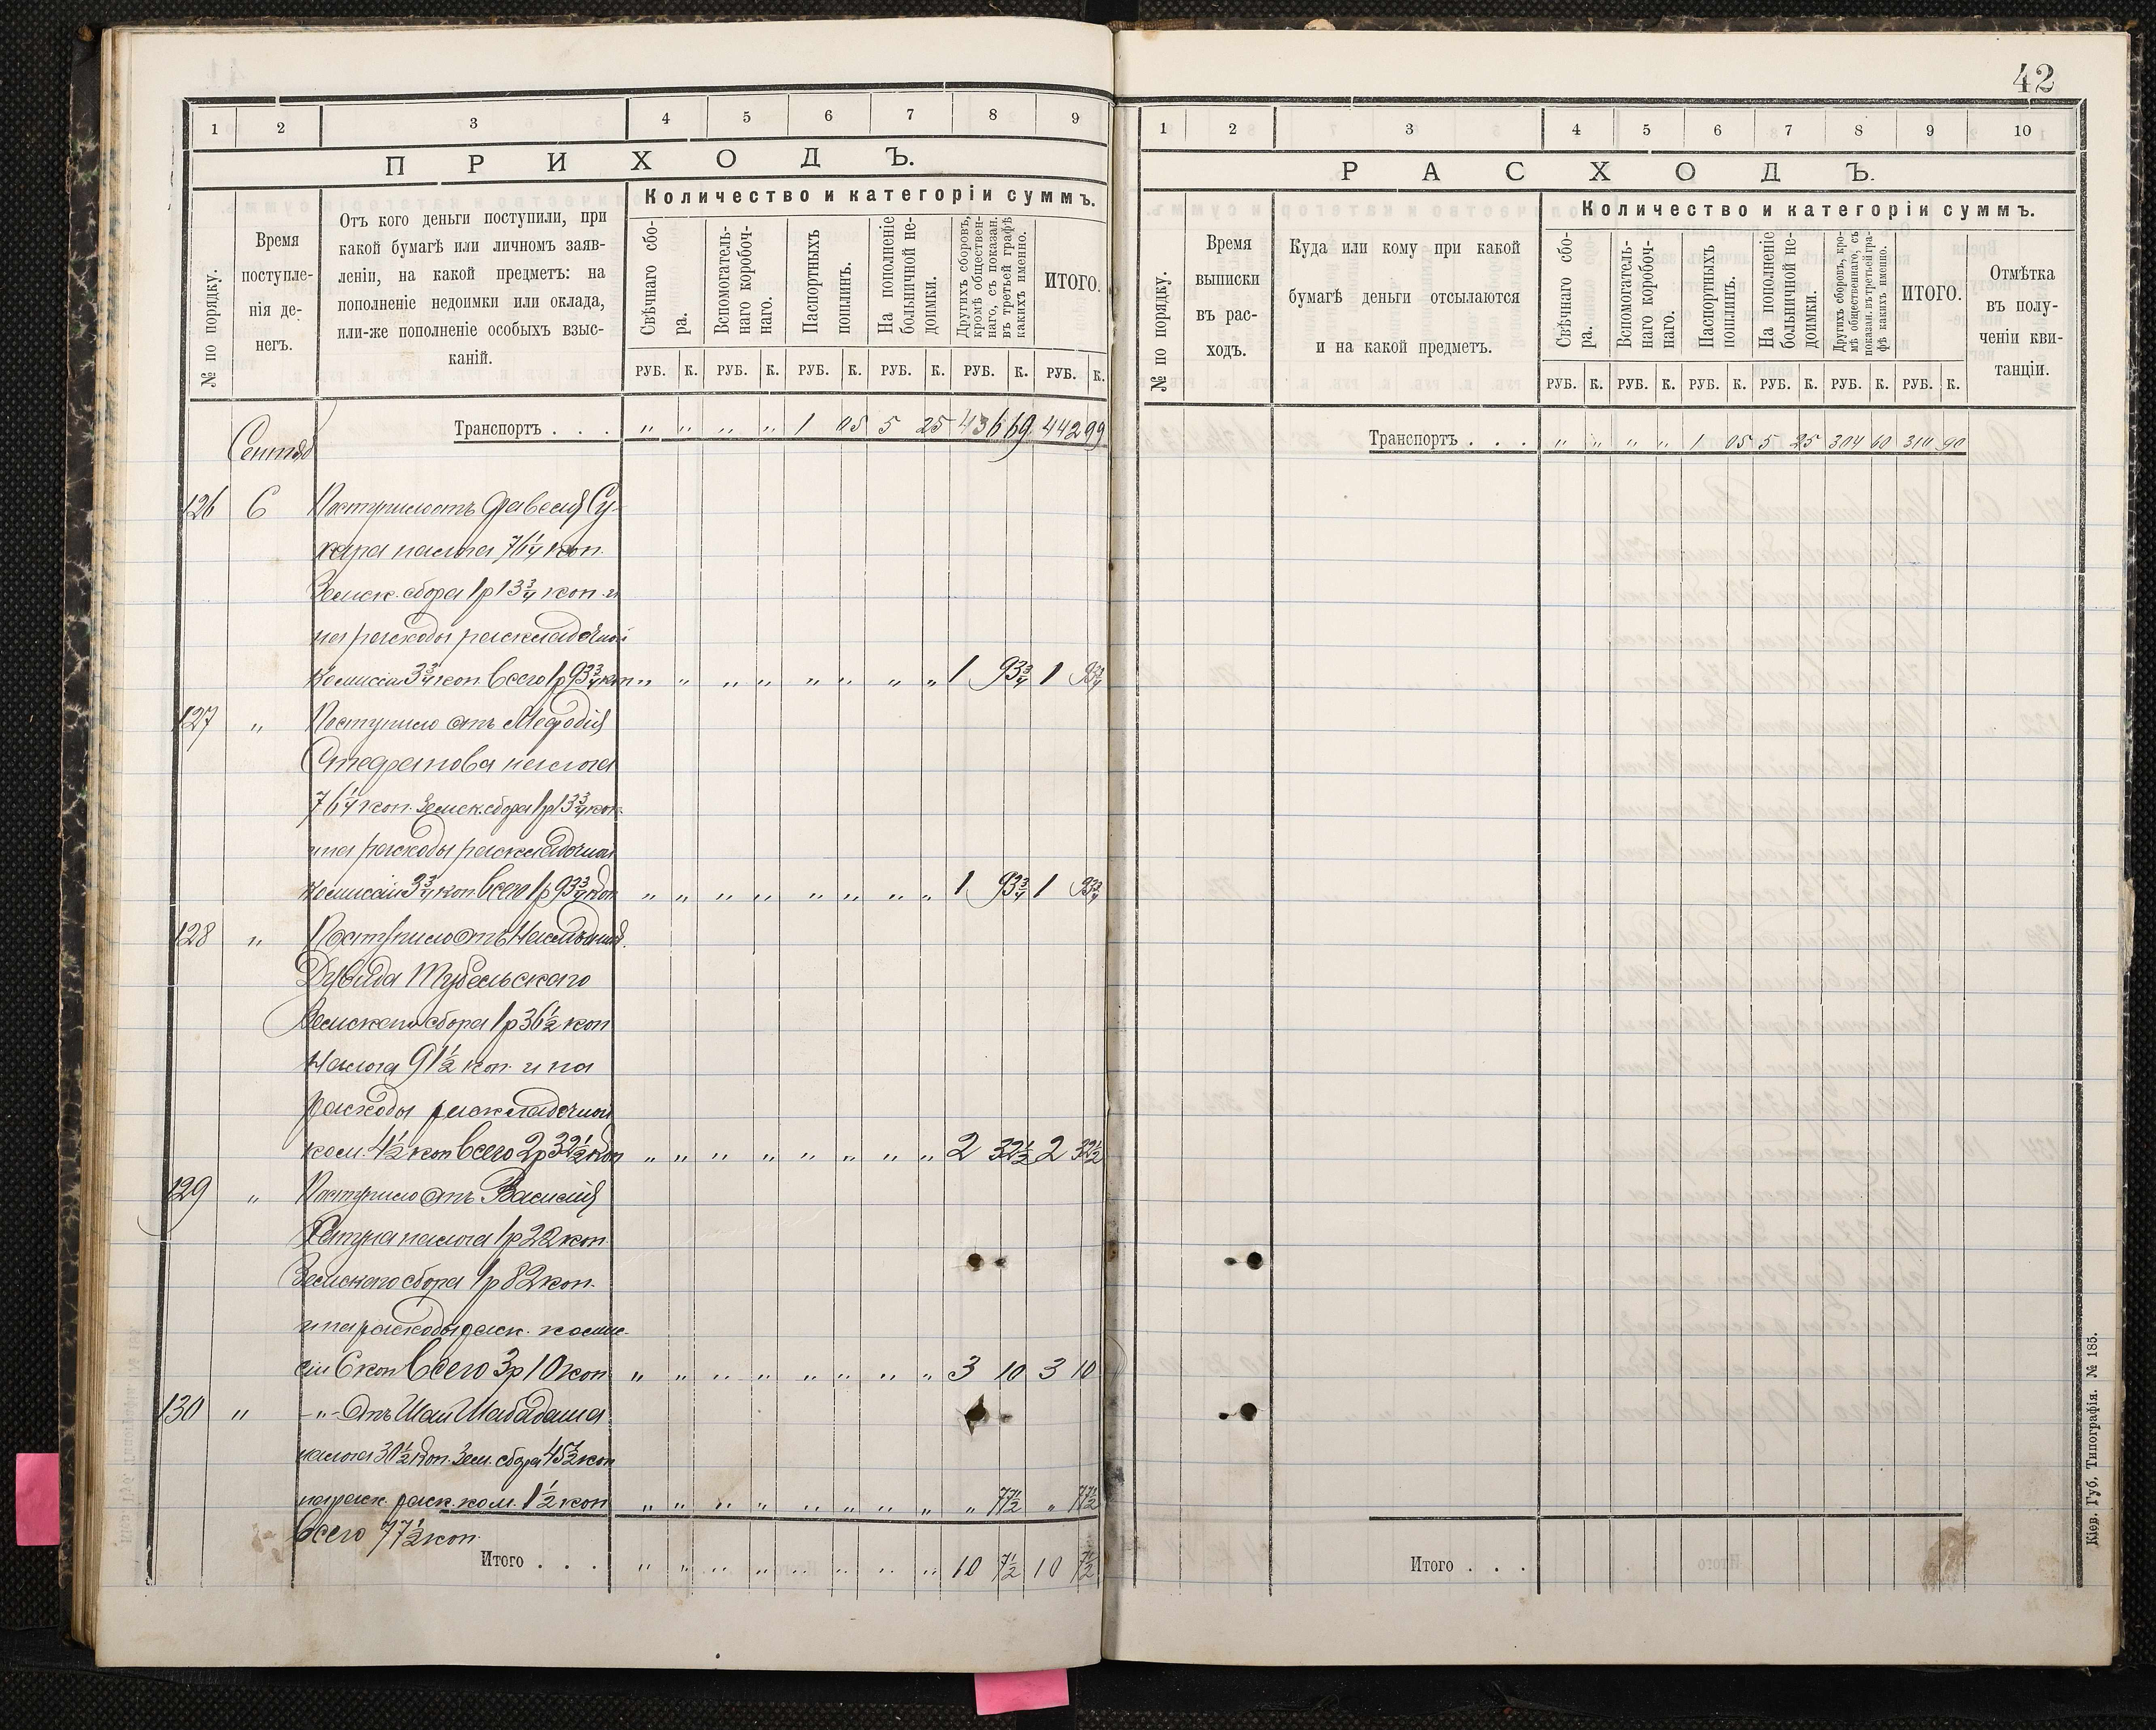 42
1 2 3 4 5 6 7 8 9
ПРИХОДЪ.
№ по порядку.
Время
поступле-
нія де-
негъ.
Отъ кого деньги поступили, при
какой бумагѣ или личномъ заяв-
леніи, на какой предметъ: на
пополненіе недоимки или оклада,
или-же пополненіе особыхъ взыс-
каній.
Количество и категоріи суммъ.
Свѣчнаго сбо-
ра.
Вспомогатель-
наго коробоч-
наго.
Паспортныхъ
пошлинъ.
На пополненіе
больничной не-
доимки.
Другихъ сборовъ,
кромѣ обществен-
наго, съ показан.
въ третьей графѣ
какихъ именно.
ИТОГО.
РУБ. К. РУБ. К. РУБ. К. РУБ. К. РУБ. К. РУБ. К.
Транспортъ . . . „ „ „ „ 1 05 5 25 436 69 442 99
Сентяб
126 6 Поступило отъ Савелія Су-
хара налога 76¼ коп.
Земск. сбора 1 р 13¾ коп. и
на расходы раскладочной
Комиссіи 3¾ коп. Всего 1 р 93¾ коп „ „ „ „ „ „ „ „ 1 93¾ 1 93¾
127 „ Поступило отъ Мефодія
Стефанова налога
76¼ коп. Земск. сбора 1 р 13¾ коп.
и на расходы раскладочной
Комиссіи 3¾ коп. Всего 1 р 93¾ коп „ „ „ „ „ „ „ „ 1 93¾ 1 93¾
128 „ Поступило отъ Наслѣдник.
Дувида Тубельскаго
Земскаго сбора 1 р 36½ коп
Налога 91½ коп. и на
расходы раскладочной
ком. 4½ коп Всего 2 р 32½ коп „ „ „ „ „ „ „ „ 2 32½ 2 32½
129 „ Поступило отъ Василія
налога 1 р 22 коп.
Земскаго сбора 1 р 82 коп.
и на расходы раск. комис-
сіи 6 коп Всего 3 р 10 коп „ „ „ „ „ „ „ „ 3 10 3 10
130 „ -„- отъ Шаи Шабадаша
налога 30½ коп. Зем. сбора 45½ коп
на раск. раск. ком. 1½ коп „ „ „ „ „ „ „ „ „ 77½ „ 77½
Всего 77½ коп.
Итого . . . „ „ „ „ „ „ „ „ 10 7½ 10 7½
1 2 3 4 5 6 7 8 9 10
РАСХОДЪ.
№ по порядку.
Время
выписки
въ рас-
ходъ.
Куда или кому при какой
бумагѣ деньги отсылаются
и на какой предметъ.
Количество и категоріи суммъ.
Свѣчнаго сбо-
ра.
Вспомогатель-
наго коробоч-
наго.
Паспортныхъ
пошлинъ.
На пополненіе
больничной не-
доимки.
Другихъ сборовъ, кро-
мѣ общественнаго, съ
показан. въ третьей гра-
фѣ какихъ именно.
ИТОГО.
Отмѣтка
въ полу-
ченіи кви-
танціи.
РУБ. К. РУБ. К. РУБ. К. РУБ. К. РУБ. К. РУБ. К.
Транспортъ . . . „ „ „ „ 1 05 5 25 304 60 310 90
Итого . . .
Кіев. Губ. Типографія. № 185.